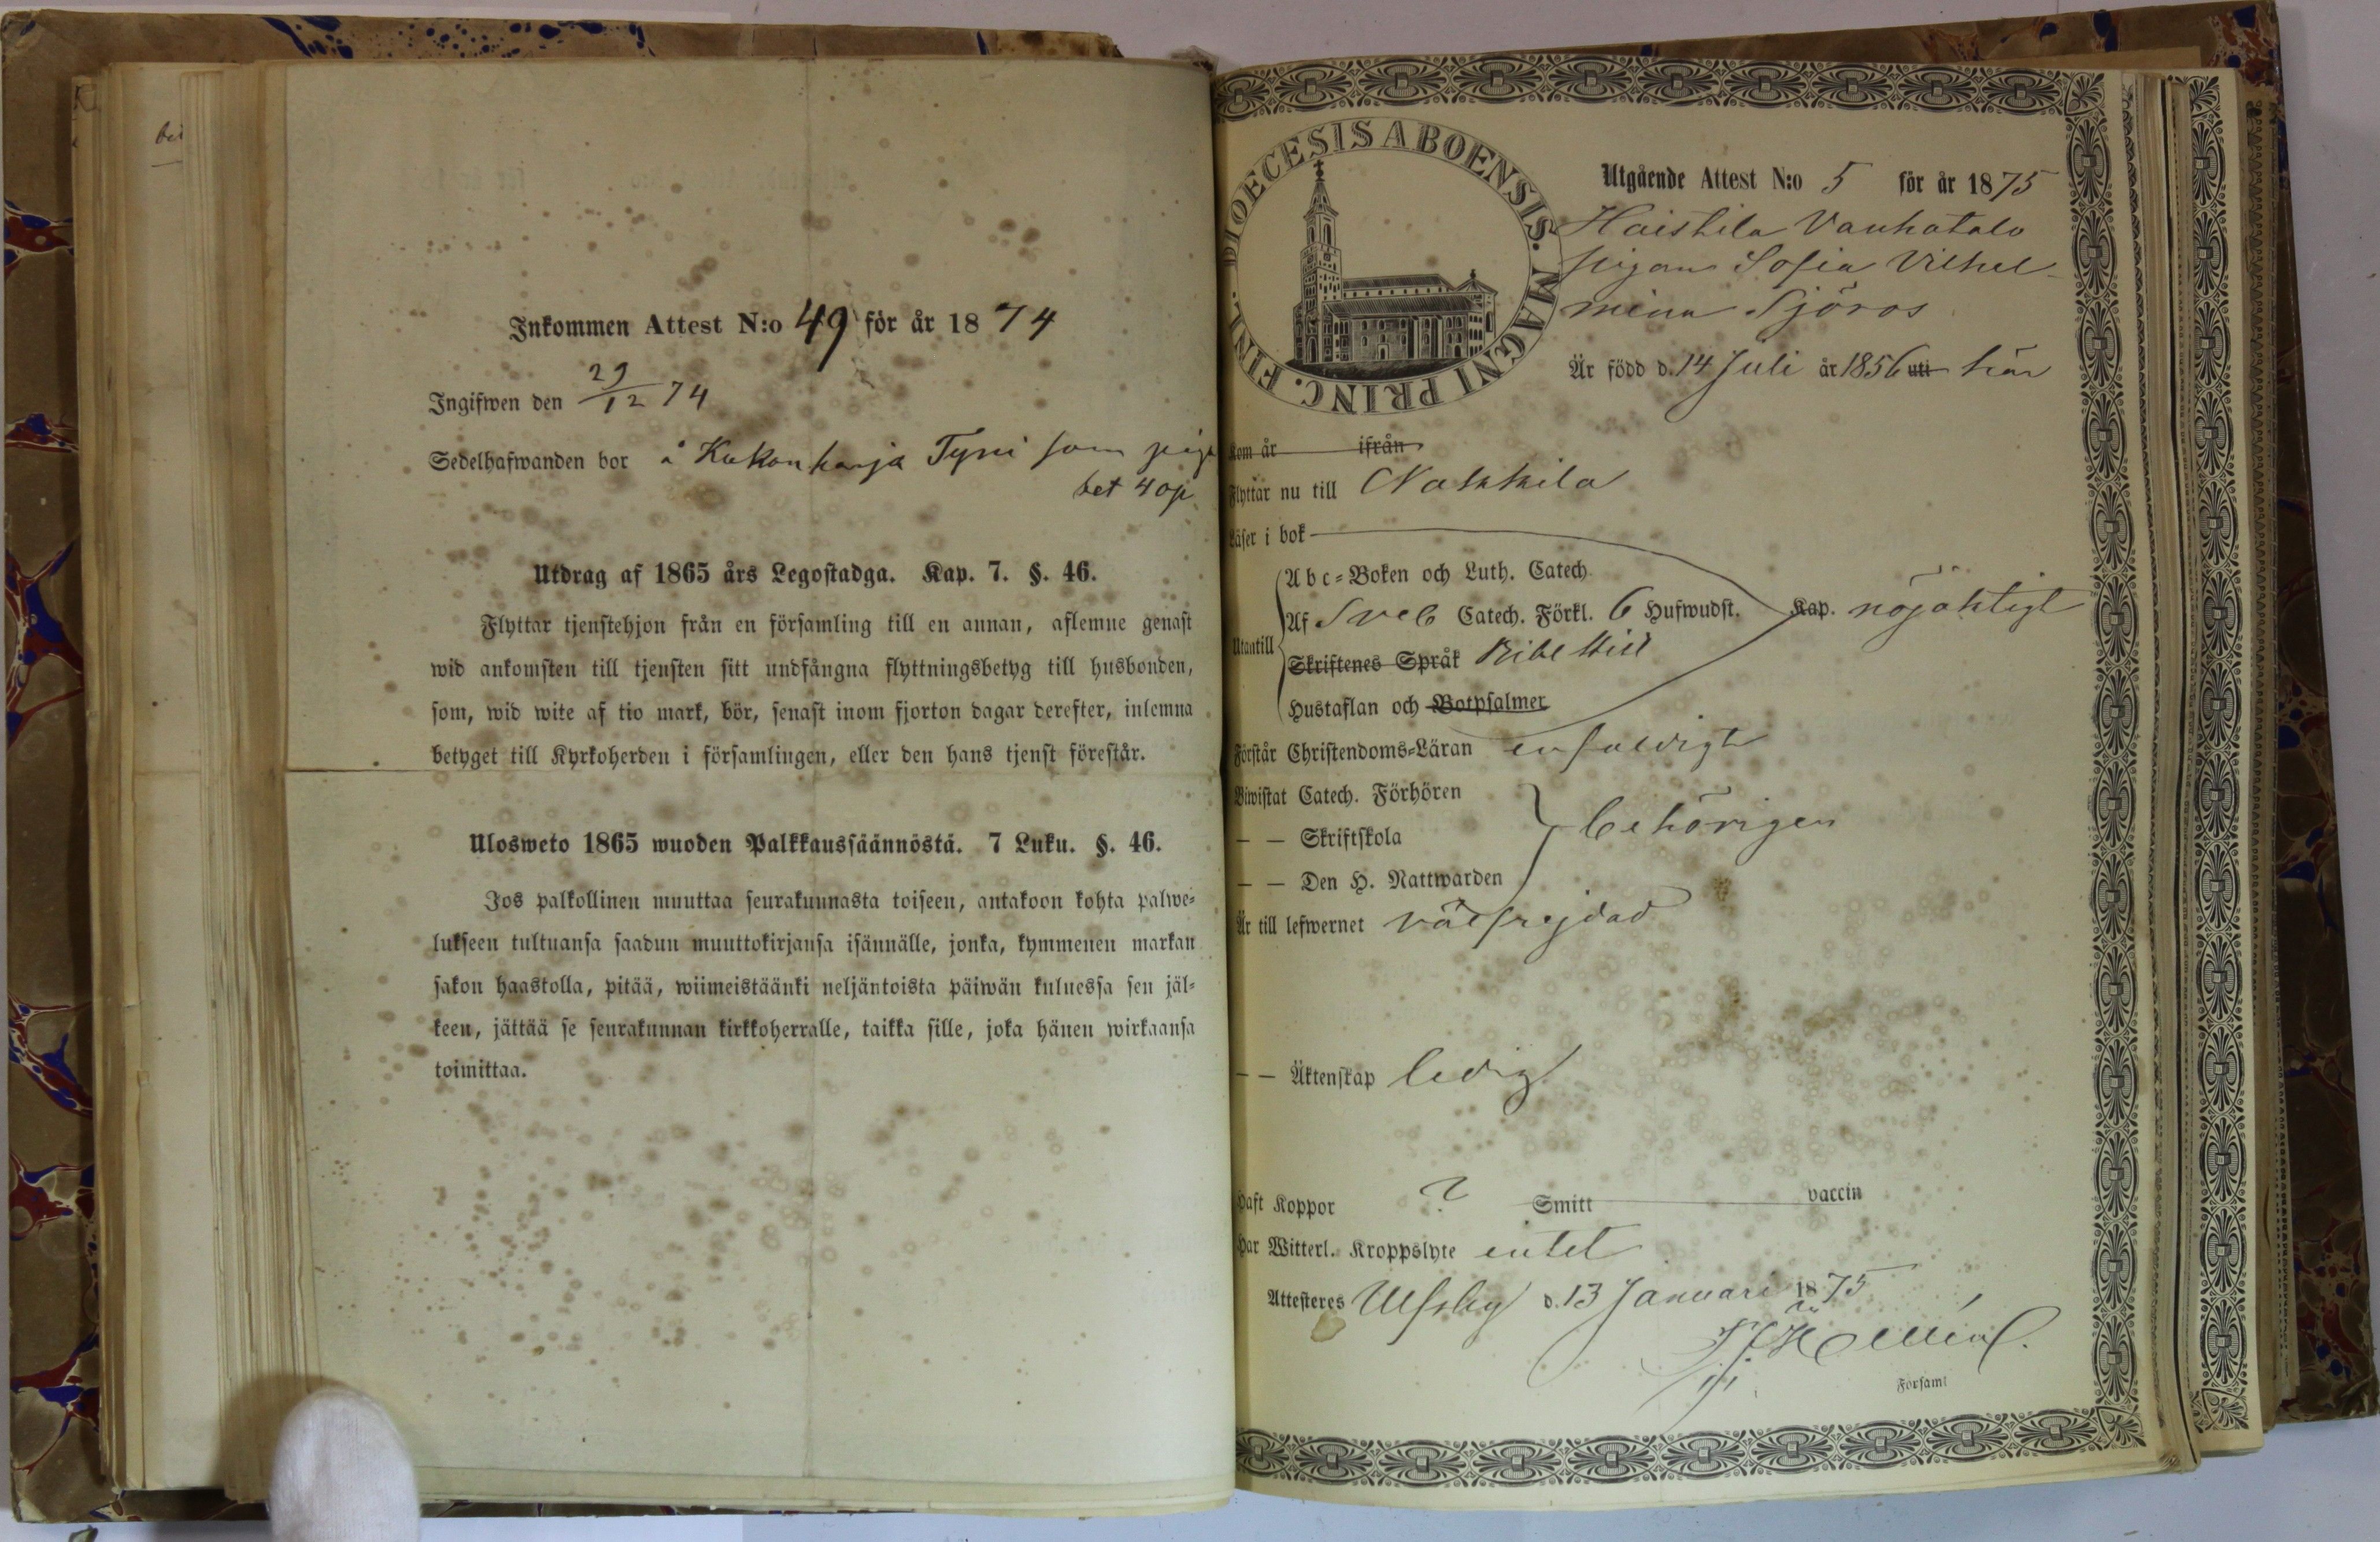 bet
Inkommen Attest N:o 49 för år 1874
Ingifwen den 29/12 74
Sedelhafwanden bor å Kukonharja Tyni som piga
bet 40 p
Utdrag af 1865 års Legostadga. Kap. 7. §. 46.
Flyttar tjenstehjon från en församling till en annan, aflemne genast
wid ankomsten till tjensten sitt undfångna flyttningsbetyg till husbonden,
som, wid wite af tio mark, bör, senast inom fjorton dagar derefter, inlemna
betyget till Kyrkoherden i församlingen, eller den hans tjenst förestår.
Ulosweto 1865 wuoden Palkkaussäännöstä. 7 Luku. §. 46.
Jos palkollinen muuttaa seurakunnasta toiseen, antakoon kohta palwe-
lukseen tultuansa saadun muuttokirjansa isännälle, jonka, kymmenen markan
sakon haastolla, pitää, wiimeistäänki neljäntoista päiwän kuluessa sen jäl-
keen, jättää se seurakunnan kirkkoherralle, taikka sille, joka hänen wirkaansa
toimittaa.
DIOECESIS ABOENSIS. MAGNI PRINC. FINL.
Utgående Attest N:o 5 för år 1875
Haistila Vanhatalo
pigan Sofia Vilhel-
mina Sjöros
Är född d. 14 Juli år 1856 uti här
Kom år ifrån
Flyttar nu till Nakkila
Läser i bok
Abc-Boken och Luth. Catech.
Af Sveb Catech. Förkl. 6 Hufwudst. Kap. nöjaktigt
Utantill
Skriftenes Språk Bibl Hist
Hustaflan och Botpsalmer
Förstår Christendoms-Läran enfaldigt
Biwistat Catech. Förhören
— — Skriftskola behörigen
— — Den H. Nattwarden
Är till lefwernet välfrejdad
— — Äktenskap ledig
Haft Koppor ? Smitt vaccin
Har Witterl. Kroppslyte intet
Attesteres Ulfsby d. 13 Januari 1875
Församl